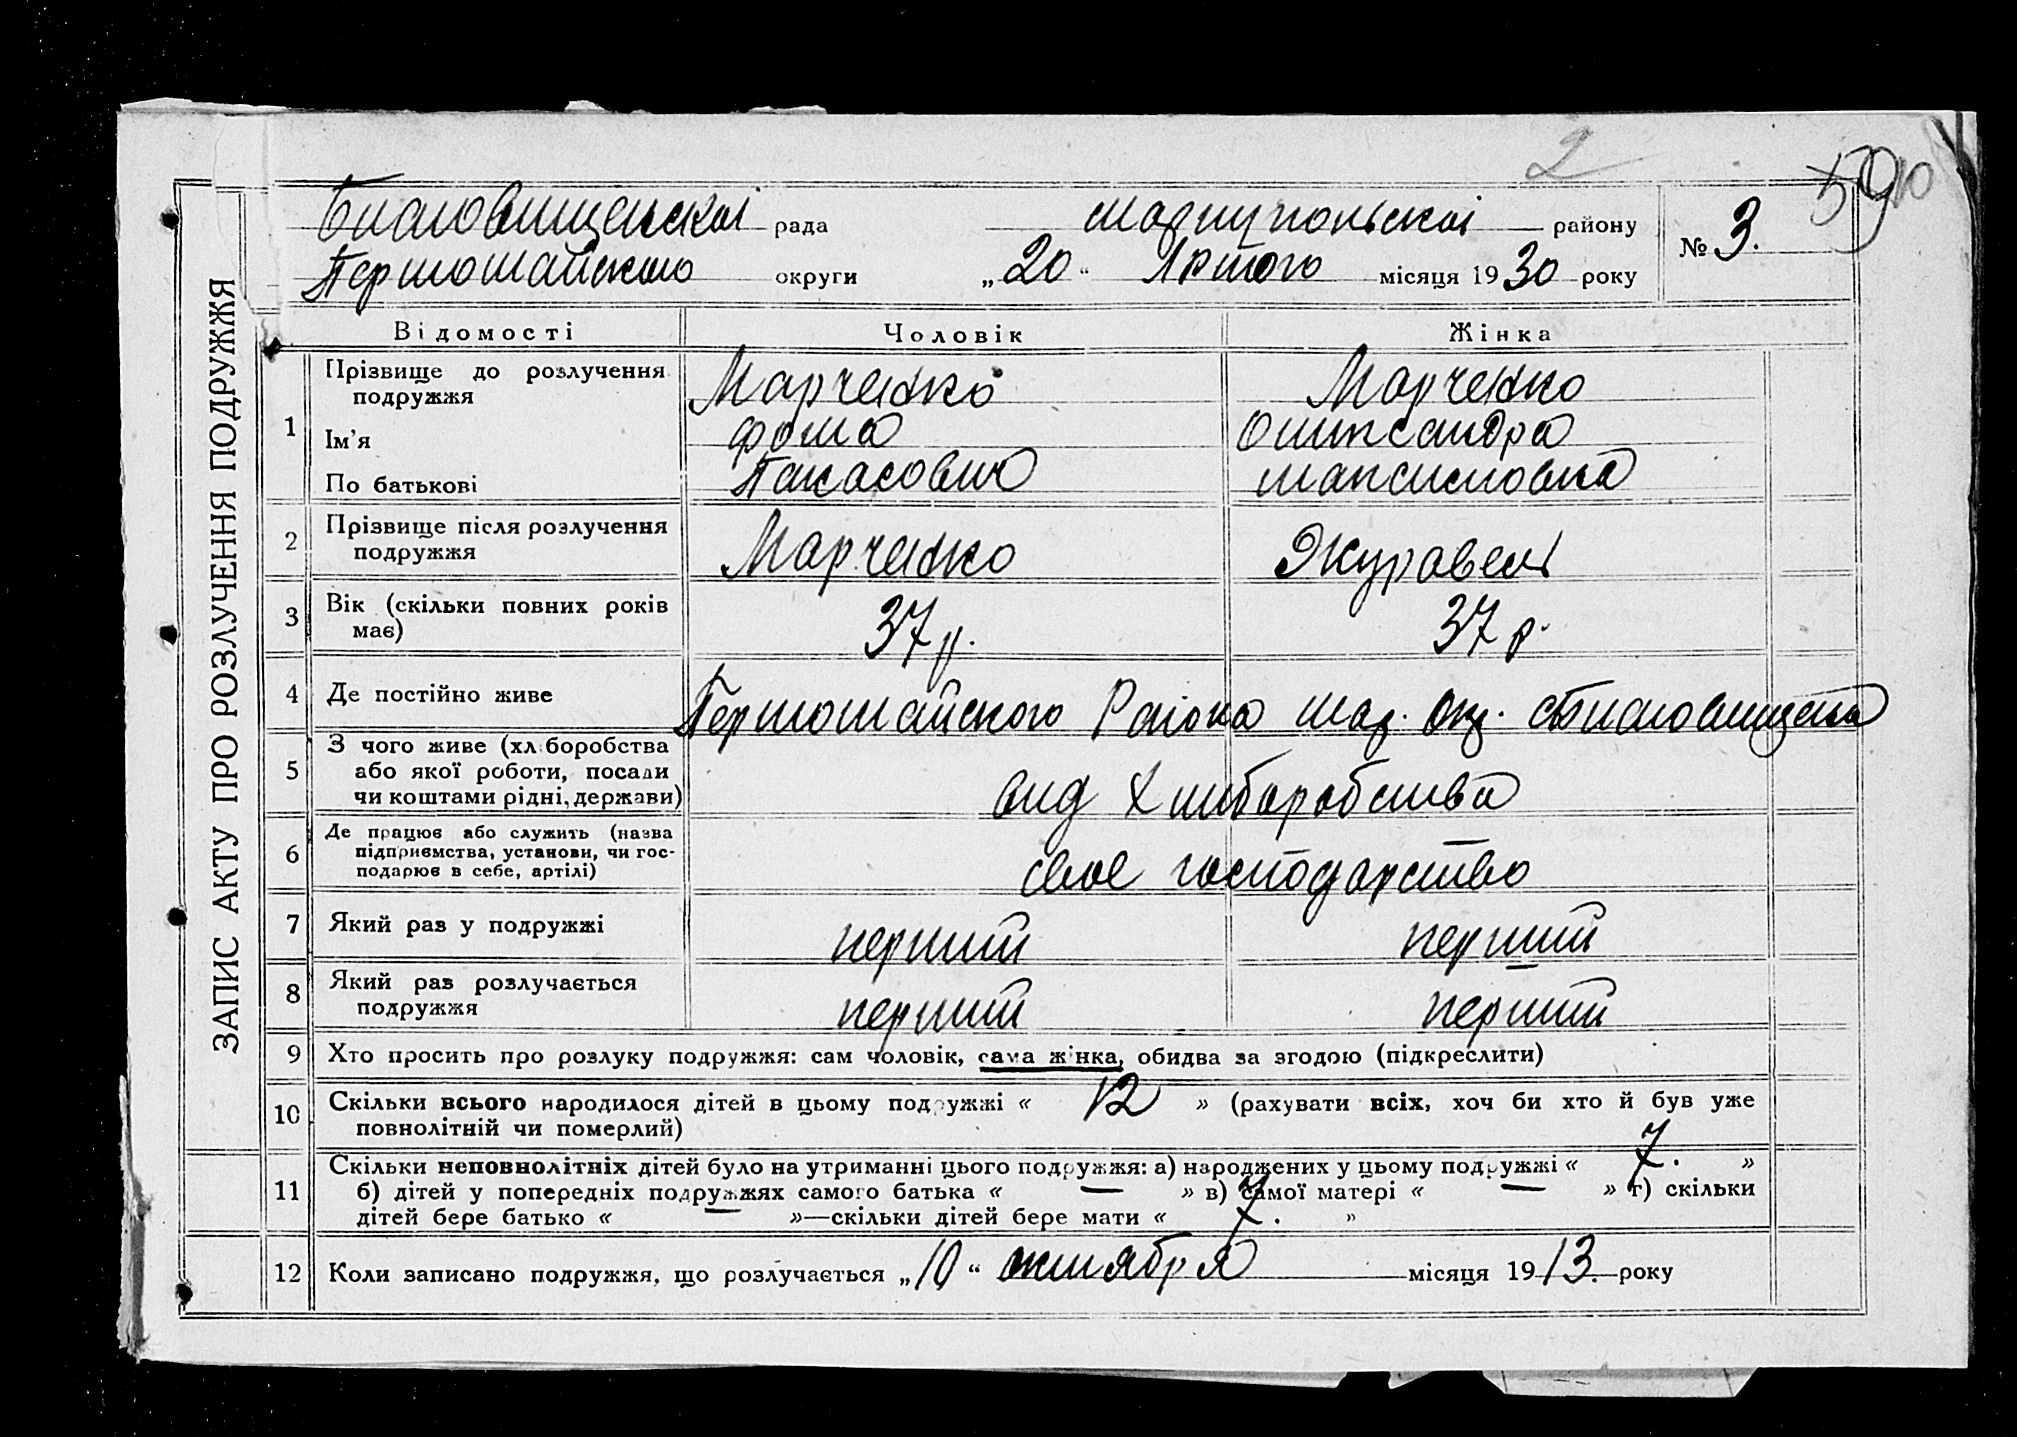 2
59 10
Благовищенскоі рада Маріупольскоі району № 3.
Першомайського округи „20“ Лютого місяця 1930 року
ЗАПИС АКТУ ПРО РОЗЛУЧЕННЯ ПОДРУЖЖЯ
Відомості Чоловік Жінка
1 Прізвище до розлучення подружжя Марченко Марченко
Ім'я Фома Олександра
По батькові Максимовна
2 Прізвище після розлучення подружжя Марченко Журавель
3 Вік (скільки повних років має) 37 р. 37 р.
4 Де постійно живе Першомайского Раіона Мар. Окр. с Благовищенка
5 З чого живе (хліборобства або якої роботи, посади чи коштами рідні, держави) вид Хлиборобства
6 Де працює або служить (назва підприємства, установи, чи господарює в себе, артілі) свое господарство
7 Який раз у подружжі перший перший
8 Який раз розлучається подружжя перший перший
9 Хто просить про розлуку подружжя: сам чоловік, сама жінка, обидва за згодою (підкреслити)
10 Скільки всього народилося дітей в цьому подружжі « 12 » (рахувати всіх, хоч би хто й був уже
повнолітній чи померлий)
11 Скільки неповнолітніх дітей було на утриманні цього подружжя: а) народжених у цьому подружжі « 7. »
б) дітей у попередніх подружжях самого батька « — » в) самої матері « — » г) скільки
дітей бере батько « — »—скільки дітей бере мати « 7. »
12 Коли записано подружжя, що розлучається „10“ октября місяця 1913. року